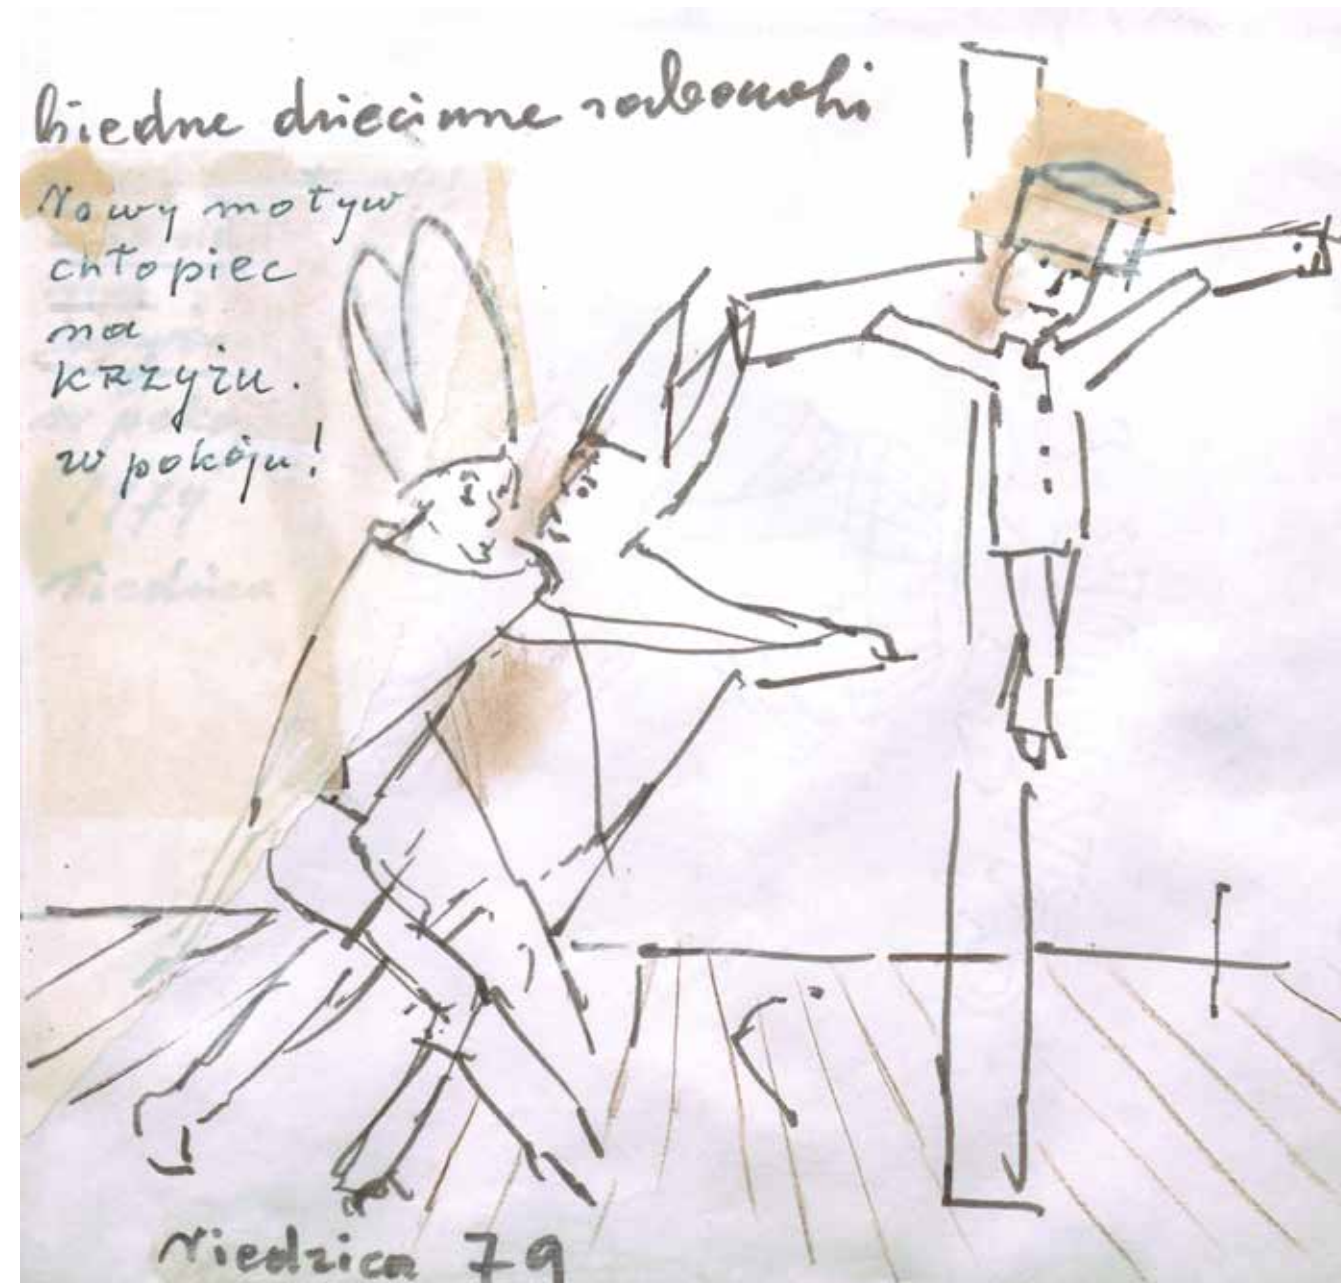 biedne dziecinne
Nowy motyw
chłopiec
na
KRZYŻU.
w pokoju!
Niedzica 79